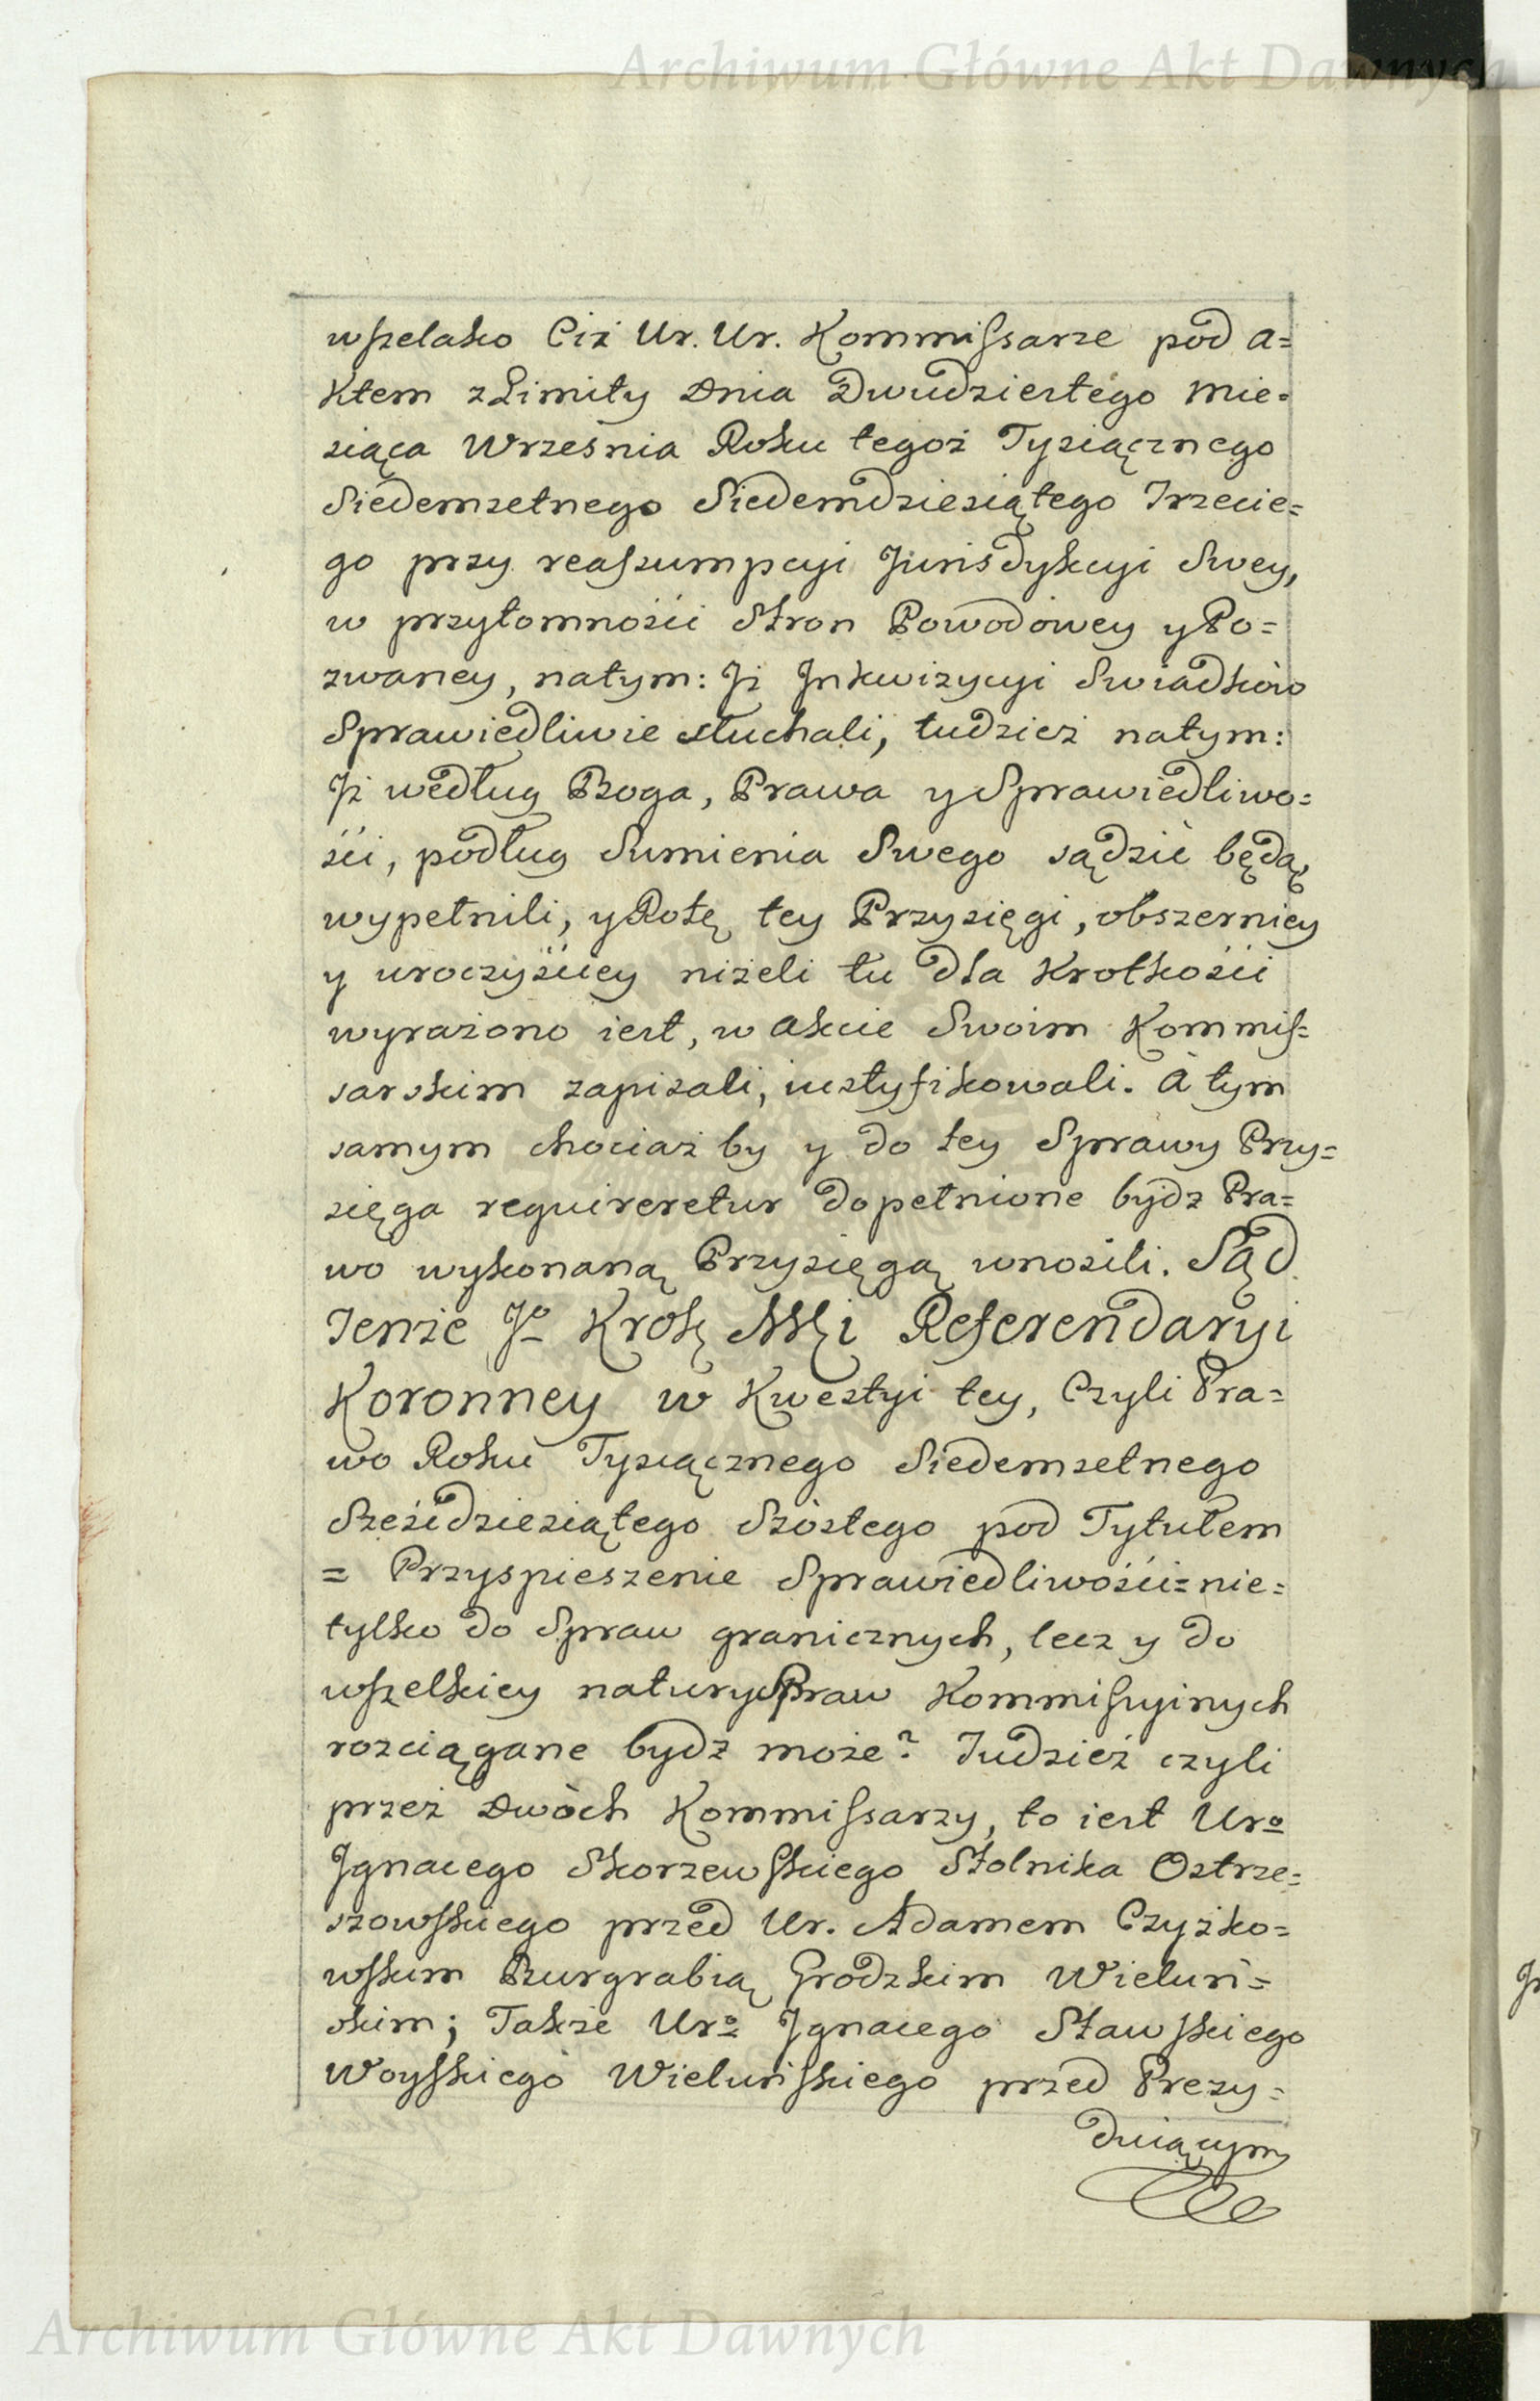 Archiwum Główne Akt Dawnych
wszelako Ciż Ur. Ur. Kommissarze pod a=
ktem z Limity Dnia Dwudziestego Mie=
siąca Września Roku tegoż Tysiącznego
Siedemsetnego Siedemdziesiątego Trzecie=
go przy reassumpcyi Jurisdykcyi Swey,
w przytomności Stron Powodowey y Po=
zwaney, natym: Jż Jnkwizycyi Swiadków
Sprawiedliwie słuchali, tudzież natym:
Jż według Boga, Prawa y Sprawiedliwo=
ści, podług Sumienia Swego sądzić będą
wypełnili, y Rotę tey Przysięgi, obszerniey
y uroczyściey niżeli tu dla Krotkości
wyrażono iest, w akcie Swoim Kommis=
sarskim zapisali, iustyfikowali. A tym
samym chociaż by y do tey Sprawy Przy=
sięga requireretur dopełnione bydz Pra=
wo wykonaną Przysięgą wnosili. Sąd
Tenże Jo Krolę Mći Referendaryi
Koronney w Kwestyi tey, Czyli Pra=
wo Roku Tysiącznego Siedemsetnego
Sześćdziesiątego Szóstego pod Tytułem
= Przyspieszenie Sprawiedliwości= nie=
tylko do Spraw granicznych, lecz y do
wszelkiey natury Spraw Kommissyinych
rozciągane bydz może? Tudzież czyli
przez Dwòch Kommissarzy, to iest Uro
Jgnacego Skorzewskiego Stolnika Ostrze=
szowskiego przed Ur. Adamem Czyżko=
wskim Burgrabią Grodzkim Wieluń=
skim; Także Uro Jgnacego Stawskiego
Woyskiego Wieluńskiego przed Prezy=
duiącym
Archiwum Główne Akt Dawnych